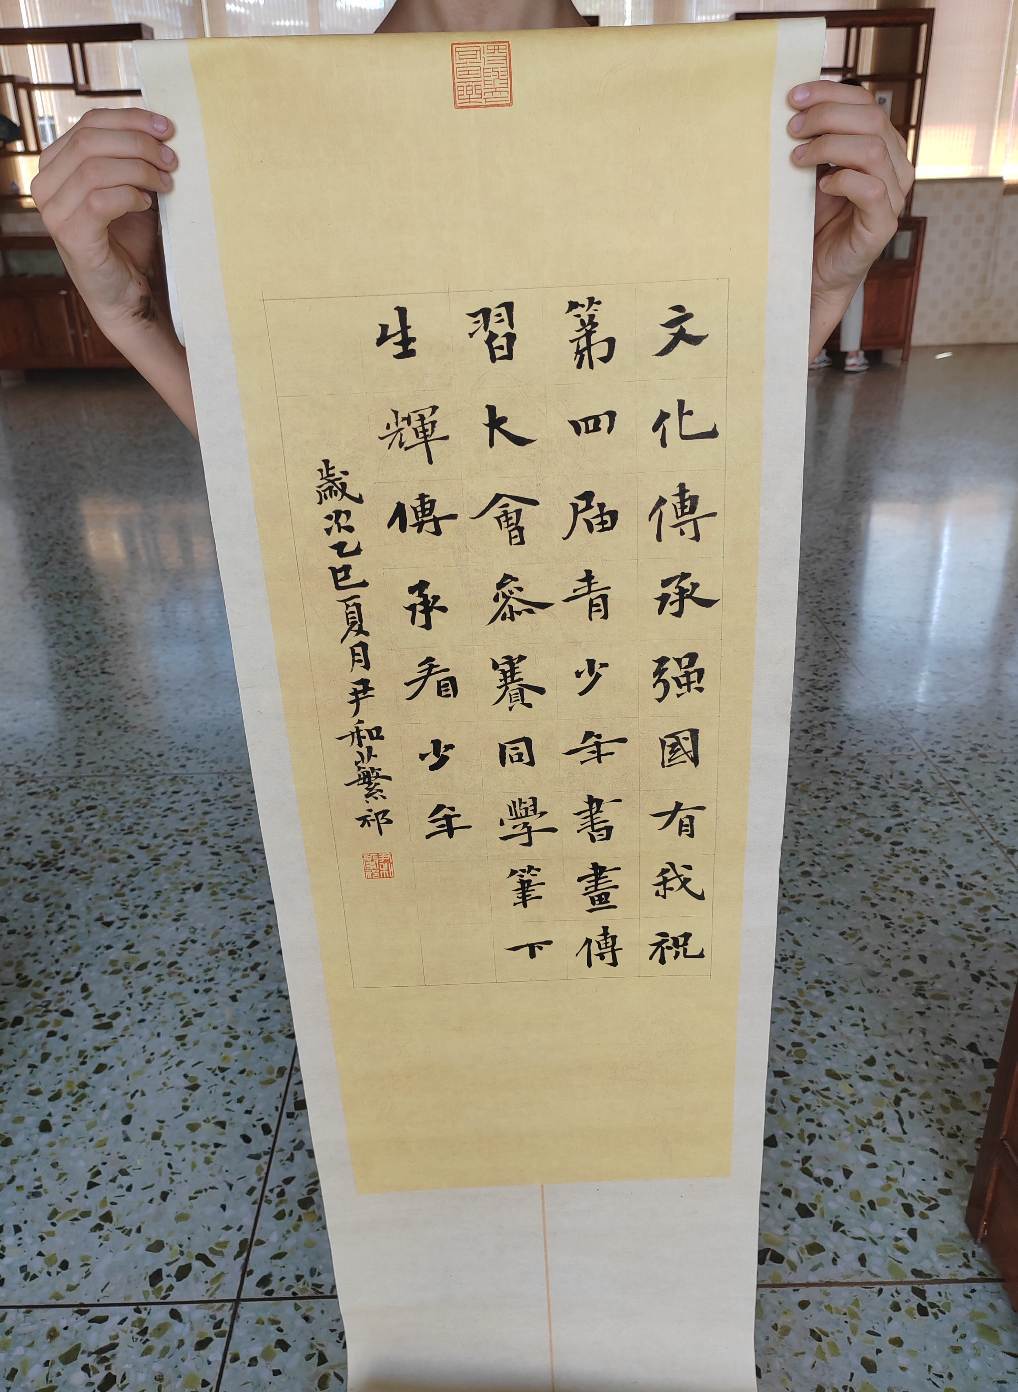 文化傳承强國有我祝
第四届青少年書畫傳
習大會參賽同學筆下
生輝傳承看少年
歲次乙巳夏月尹和蘩祁